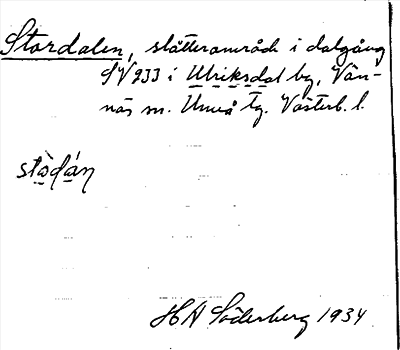 Stordalen, slåtterområde i dalgång
SV 933 i Ulriksdal by, Vän-
näs sn. Umeå tg. Västerb. l.
stòdán
H A Söderberg 1934